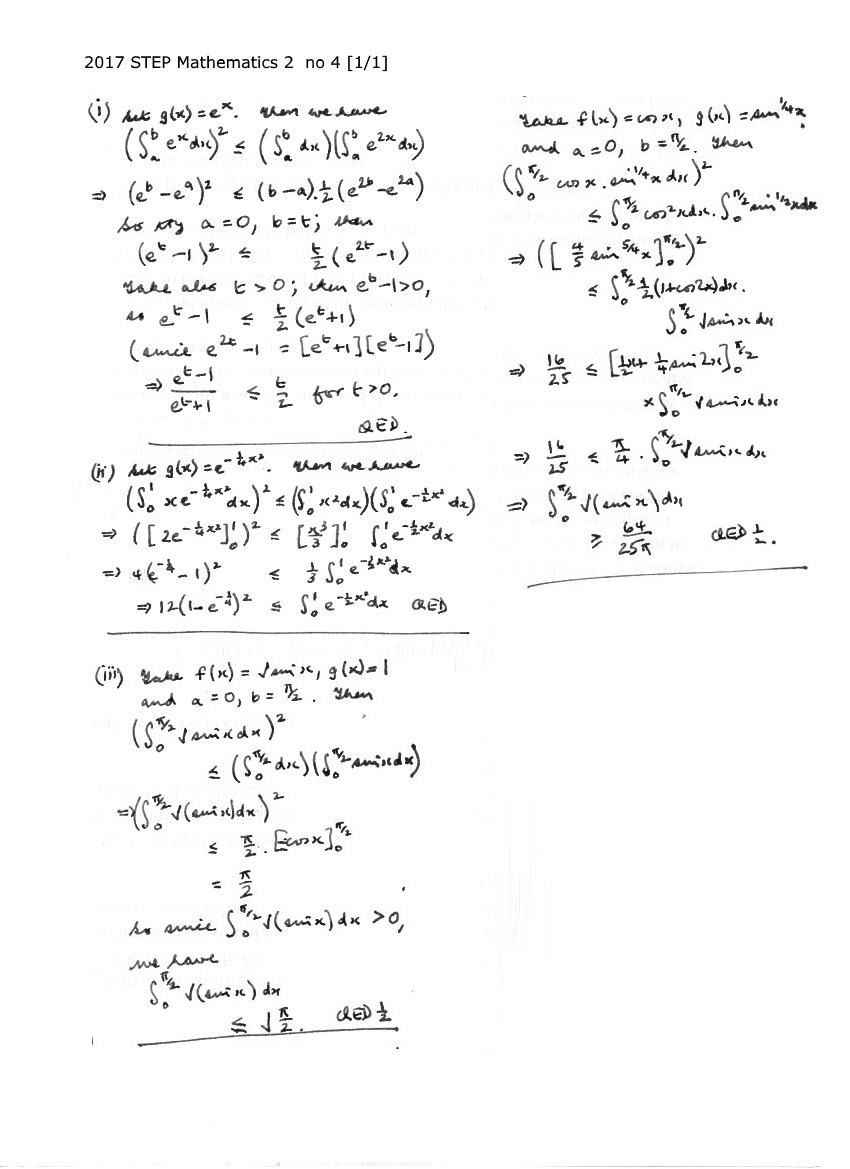 2017 STEP Mathematics 2 no 4 [1/1]
(i) Set g(x) = eˣ. Then we have
(∫ₐᵇ eˣdx)² ≤ (∫ₐᵇ dx)(∫ₐᵇ e²ˣdx)
⇒ (eᵇ-eᵃ)² ≤ (b-a).½(e²ᵇ-e²ᵃ)
So try a = 0, b = t; then
(eᵗ-1)² ≤ t/2 (e²ᵗ-1)
Take also t > 0; then eᵗ-1>0,
so eᵗ-1 ≤ t/2 (eᵗ+1)
(since e²ᵗ-1 = [eᵗ+1][eᵗ-1])
⇒ (eᵗ-1)/(eᵗ+1) ≤ t/2 for t>0.
QED.
(ii) Set g(x) = e^(-¼x²). Then we have
(∫₀¹ xe^(-¼x²)dx)² ≤ (∫₀¹ x²dx)(∫₀¹ e^(-½x²)dx)
⇒ ([2e^(-¼x²)]₀¹)² ≤ [x³/3]₀¹ ∫₀¹ e^(-½x²)dx
⇒ 4(e^(-¼)-1)² ≤ ⅓ ∫₀¹ e^(-½x²)dx
⇒ 12(1-e^(-¼))² ≤ ∫₀¹ e^(-½x²)dx QED
(iii) Take f(x) = √sin x, g(x) = 1
and a = 0, b = π/2. Then
(∫₀^(π/2) √sin x dx)²
≤ (∫₀^(π/2) dx)(∫₀^(π/2) sin x dx)
⇒ (∫₀^(π/2) √(sin x)dx)²
≤ π/2 . [-cos x]₀^(π/2)
= π/2
So since ∫₀^(π/2) √(sin x) dx > 0,
we have
∫₀^(π/2) √(sin x) dx
≤ √π/2. QED ½
Take f(x) = cos x, g(x) = sin^(1/4) x
and a = 0, b = π/2. Then
(∫₀^(π/2) cos x . sin^(1/4) x dx)²
≤ ∫₀^(π/2) cos²x dx . ∫₀^(π/2) sin^(1/2) x dx
⇒ ([4/5 sin^(5/4) x]₀^(π/2))²
≤ ∫₀^(π/2) ½(1+cos2x)dx.
∫₀^(π/2) √sin x dx
⇒ 16/25 ≤ [½x + ¼ sin 2x]₀^(π/2)
× ∫₀^(π/2) √sin x dx
⇒ 16/25 ≤ π/4 . ∫₀^(π/2) √sin x dx
⇒ ∫₀^(π/2) √(sin x) dx
≥ 64/25π QED ½.